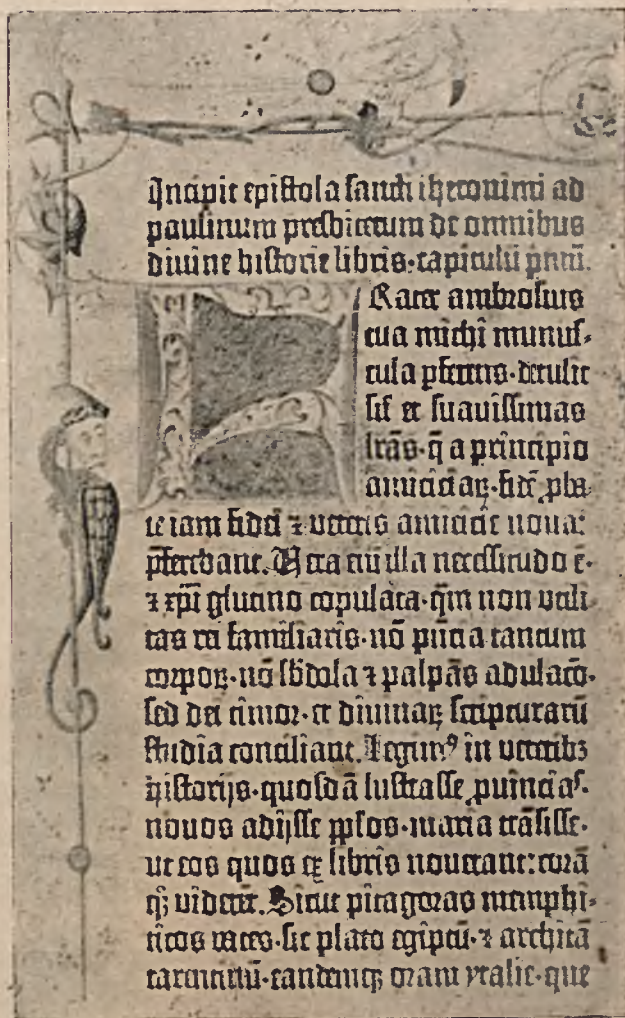 Incipit epistola sancti iheronimi ad
paulinum presbiterum de omnibus
diuine historie libris·capitulū pmū.
FRater ambrosius
tua michi munus-
cula pferens·detulit
sil̄ et suauissimas
lrās·q̄ a principio
amiciciaꝝ·fidē ꝓba-
te iam fidei ⁊ veteris amicicie noua:
pferebant. Uera eni illa necessitudo ē·
⁊ xpi glutino copulata·qm̄ non vtili-
tas rei familiaris·nō pn̄cia tantum
corpoꝝ·nō sbdola ⁊ palpās adulacō·
sed dei timor·et diuinaꝝ scripturarū
studia conciliant. Legimꝰ in veteribꝫ
historijs·quosdā lustrasse ꝓuincias·
nouos adijsse pplos·maria trāsisse·
ut eos quos ex libris nouerant: corā
qꝫ viderēt. Sicut pitagoras memphi-
ticos vates·sic plato egiptū·⁊ architā
tarentinū·eandemqꝫ oram ytalie·que